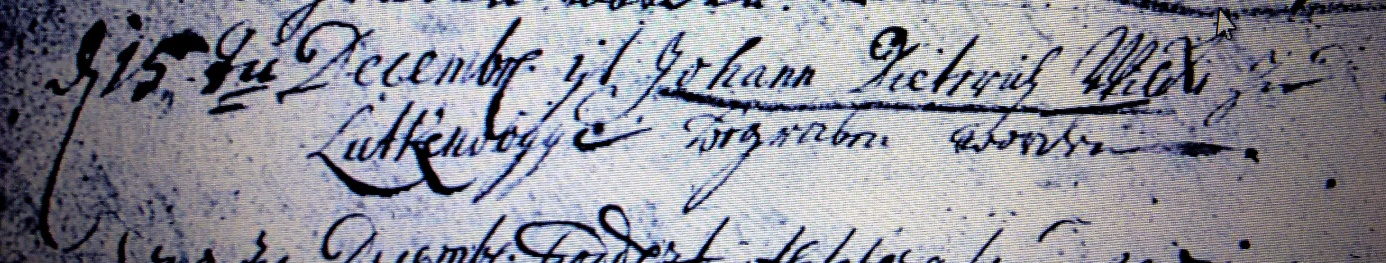 worden.
d 15 ten Decembr. ist Johann Dietrich Wilde zu
Lüttkenvögge begraben worden.
Decembr.